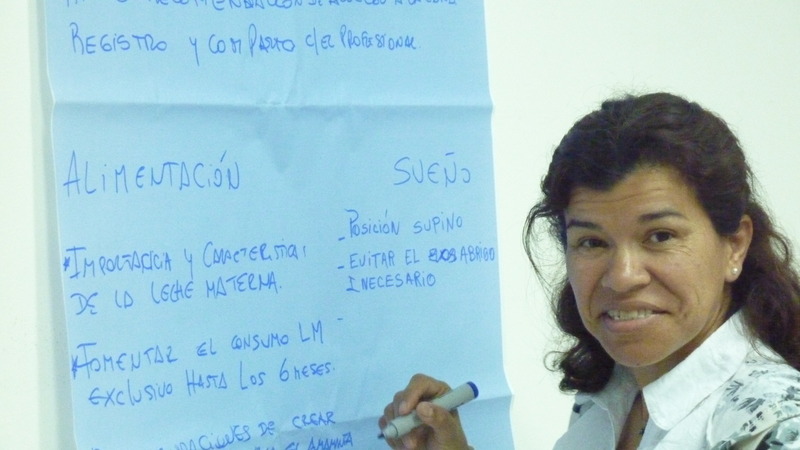 REGISTRO y COMPARTO c/EL PROFESIONAL.
ALIMENTACIÓN
* IMPORTANCIA y CARACTERISTICA
DE LA LECHE MATERNA.
* FOMENTAR EL CONSUMO LM
EXCLUSIVO HASTA LOS 6 MESES.
DE CREAR
SUEÑO
- POSICIÓN SUPINO
- EVITAR EL ABRIGO
INECESARIO
-